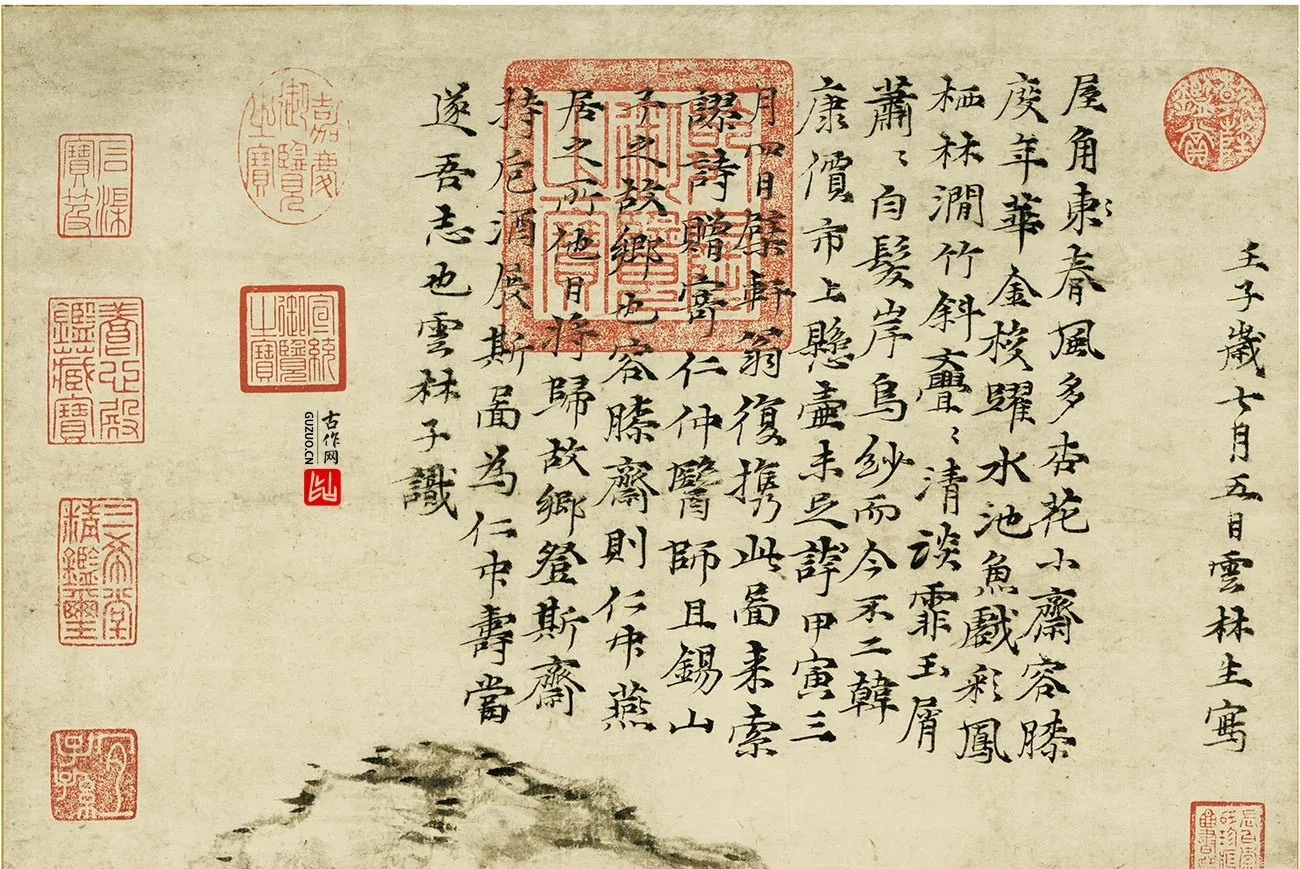 乾隆鑑賞
壬子歲七月五日雲林生寫
屋角東春風多杏花小齋容膝
度年華金梭躍水池魚戲彩鳳
栖林澗竹斜亹〻清淡霏玉屑
蕭〻白髮岸烏紗而今不二韓
康價市上懸壺未足誇甲寅三
月四日檗軒翁復携此啚来索
謬詩贈寄仁仲醫師且錫山
予之故鄉也容膝齋則仁中燕
居之所他日將歸故鄉登斯齋
持卮酒展斯啚為仁中壽當
遂吾志也雲林子識
乾隆御覽之寶
嘉慶御覽之寶
宣統御覽之寶
古作网
GUZUO.CN
石渠寶笈
養心殿鑑藏寶
三希堂精鑑璽
宜子孫